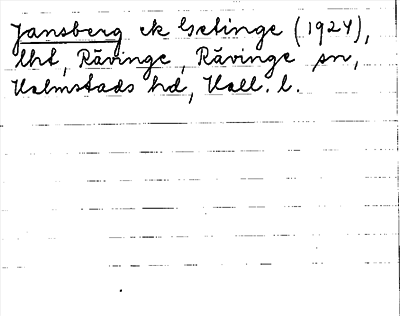 Jansberg ek Getinge (1924),
lht, Rävinge, Rävinge sn,
Halmstads hd, Hall. l.